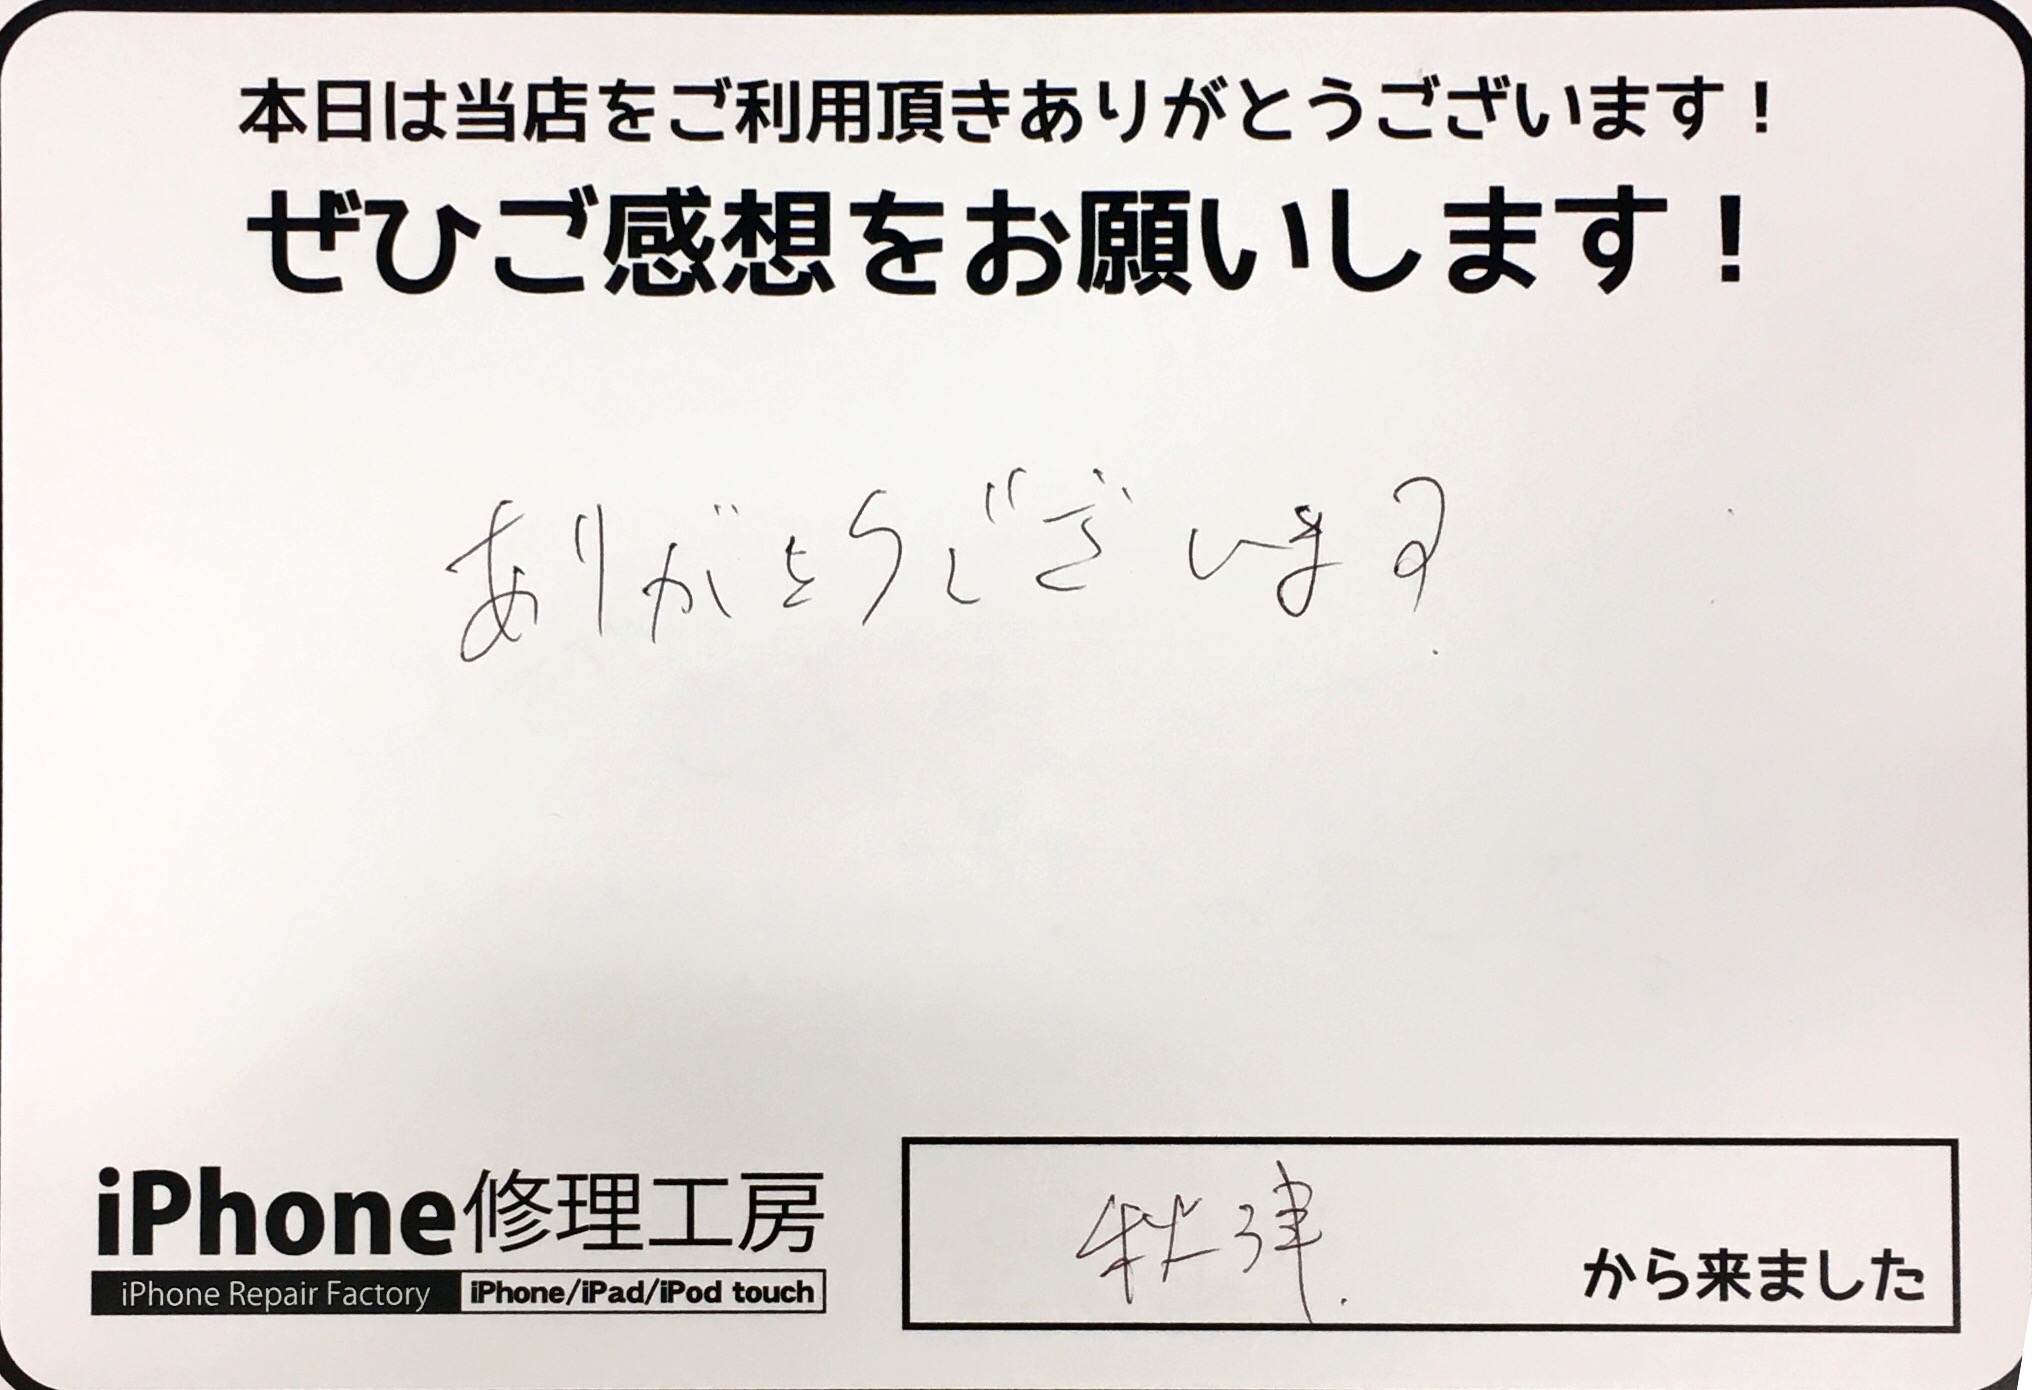 本日は当店をご利用頂きありがとうございます！
ぜひご感想をお願いします！
ありがとうございます
iPhone修理工房
iPhone Repair Factory iPhone/iPad/iPod touch
秋津 から来ました